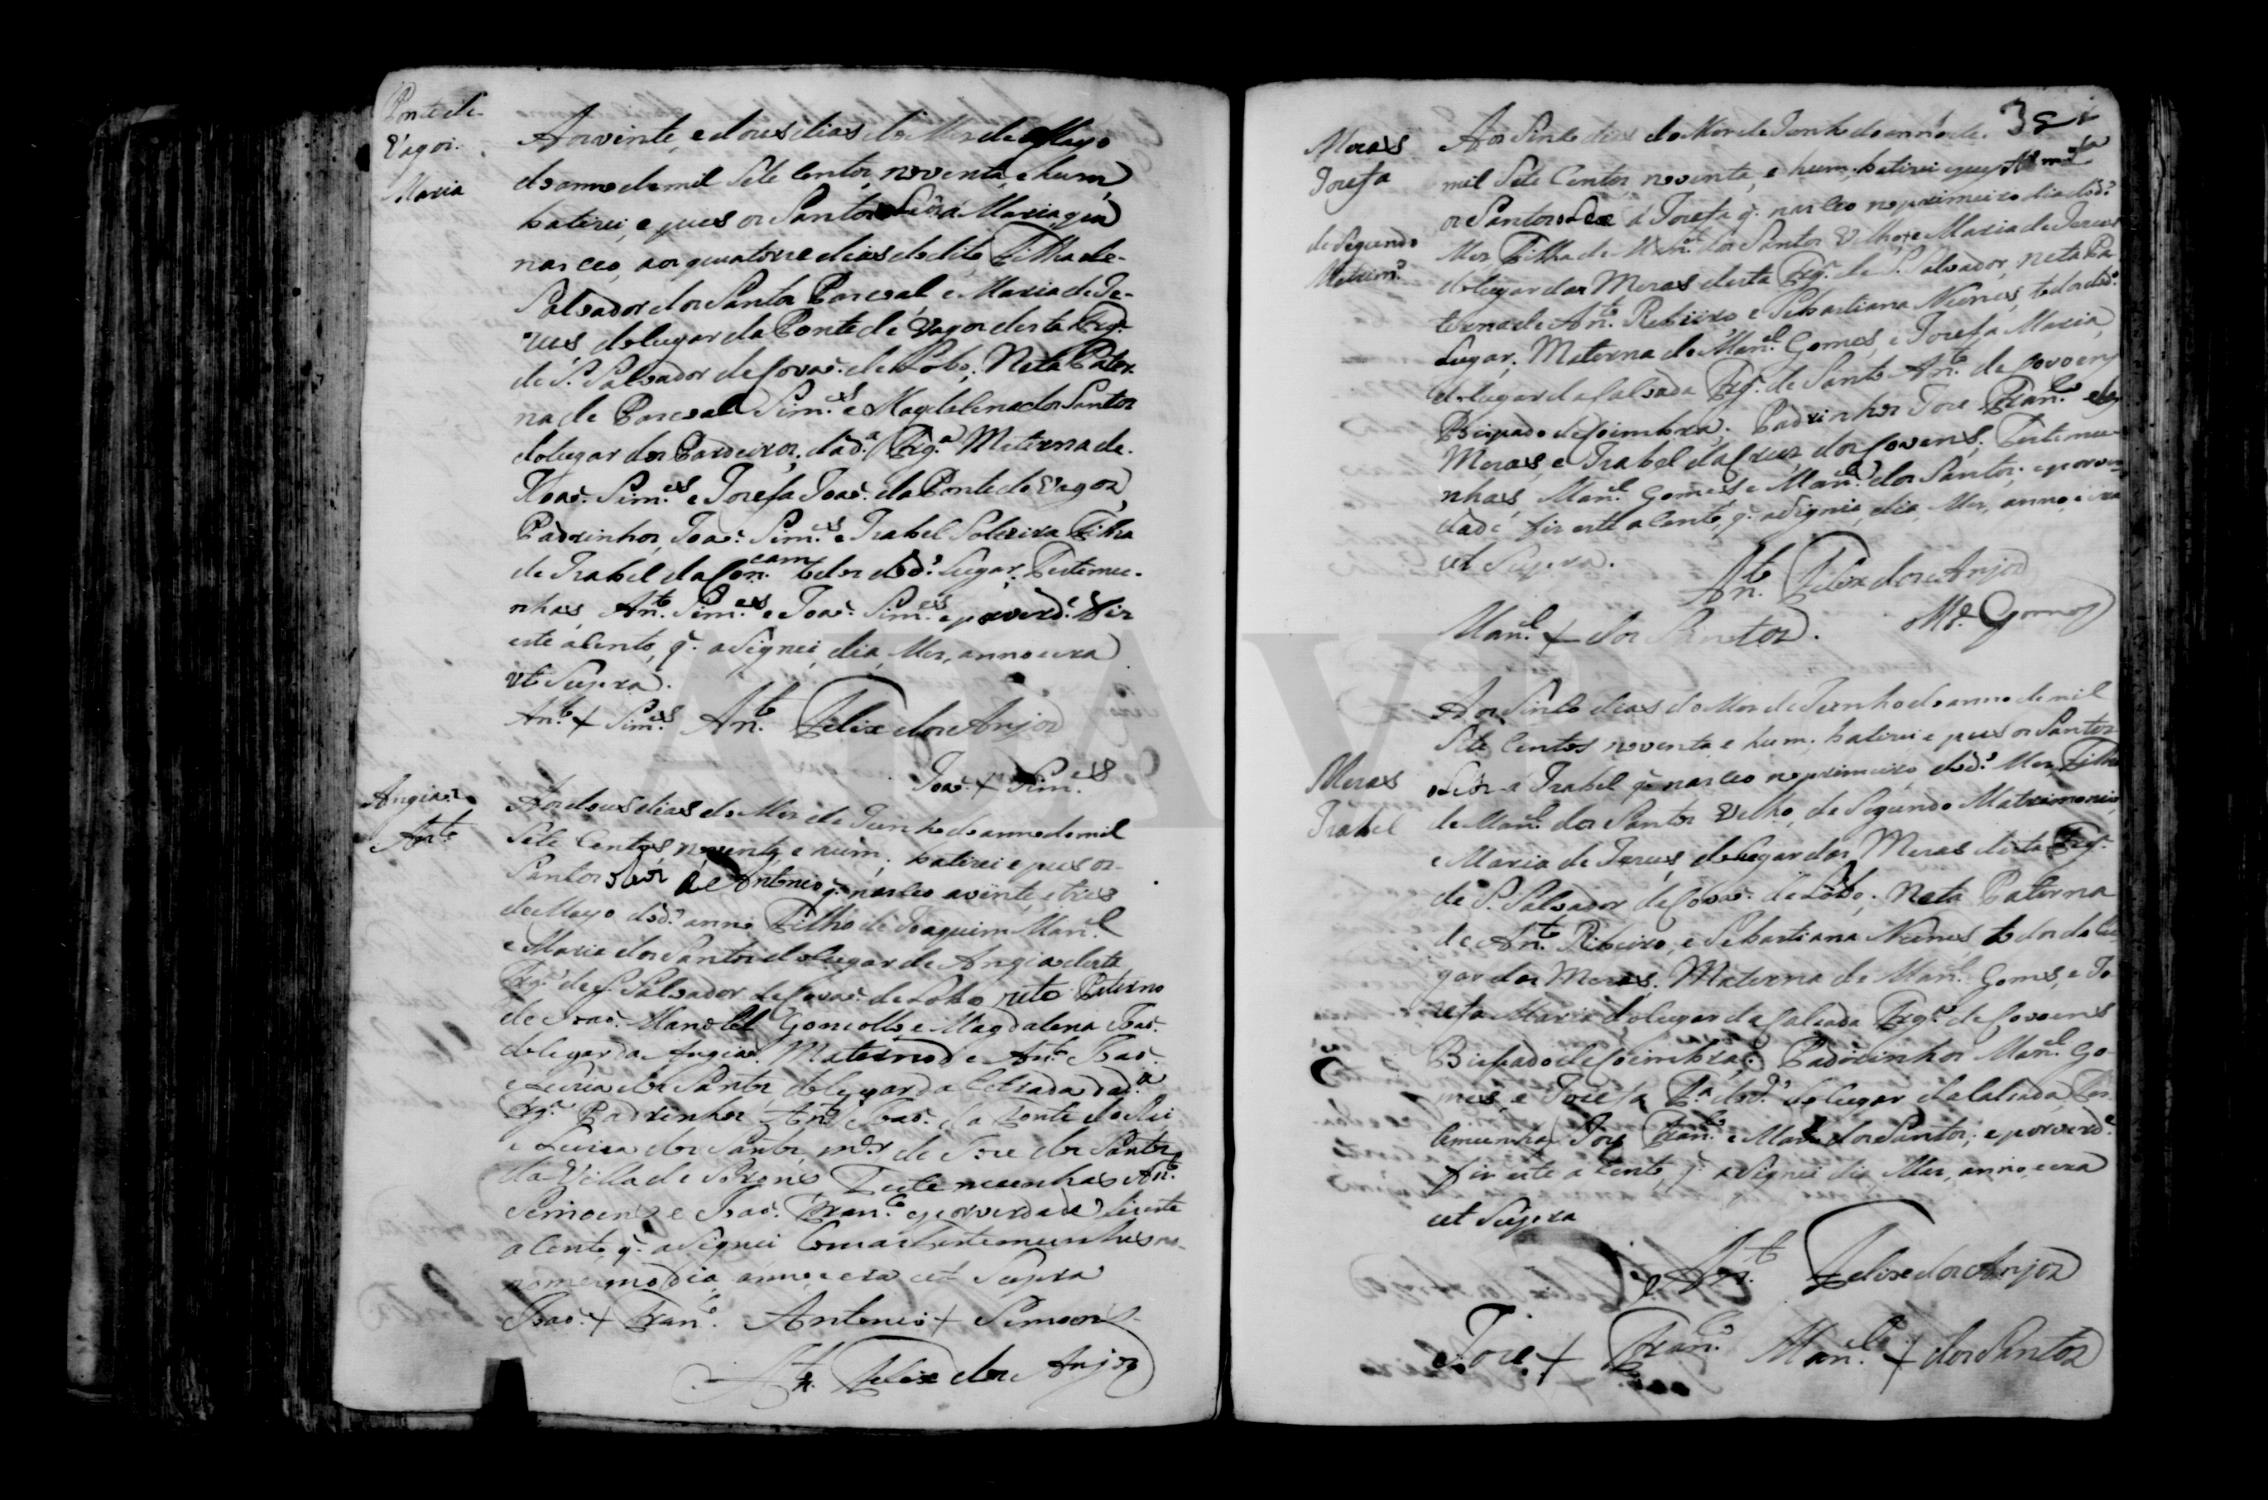 Ponte de
Vagos.
Maria
Aos vinte, e dous dias do Mes de Mayo
do anno de mil Sete Centos, noventa, e hum,
batizei, e pus os Santos Leos a Maria que
nasceo, aos quatorze dias do dito Filha de
Salvador dos Santos Pascoal e Maria de Je-
zus, do lugar da Ponte de Vagos desta Frg.ª
de S. Salvador de Covaõ. de Lobo; Neta Pater
na de Pascoal Sim.es e Magdalena dos Santos
do lugar dos Cardeiros, da d.ª Frg.ª Materna de
Joaõ. Sim.es e Josefa Joaõ. da Ponte de Vagos,
Padrinhos, Joaõ. Sim.es e Izabel Solteira Filha
de Izabel da Con.cam todos do d.º Lugar; Testemu-
nhas, An.to Sim.es e Joaõ. Sim.es e por verd.e fiz
este acento, q. asignei, dia, Mes, anno e era
ut Supra.
An.to + Sim.es An.to Felix dos Anjos
Joaõ. + Sim.es
Angiaõ.
An.to
Aos dous dias do Mes de Junho do anno de mil
Sete Centos, noventa, e hum; batizei e pus os
Santos Leos a Antonio q. nasceo a vinte, e tres
de Mayo do d.º anno Filho de Joaquim Man.el
e Maria dos Santos do Lugar de Angiaõ desta
Frg.ª de S. Salvador de Covaõ. de Lobo, neto Paterno
de Joaõ. Manoel Goncalves e Magdalena Joaõ.
do lugar da Angiaõ. Materno de An.to Joaõ.
e Luiza dos Santos, do lugar da da d.ª
Frg.ª Padrinhos An.to Joaõ. da Ponte do
e Luiza dos Santos, m.er de Jose dos Santos
da Villa de Soroens Testemunhas An.to
Simoens e Joaõ. Fran.co e por verdade fiz este
acento, q. asignei Com as testemunhas no
mesmo dia, anno, e era ut Supra
Joaõ. + Fran.co Antonio + Simoens
An.to Felix dos Anjos
38
Mezas
Josefa
de Segundo
Matrim.º
Aos Sinco dias do Mes de Junho do anno de
mil Sete Centos noventa, e hum, batizei e pus
os Santos Leos á Josefa q. nasceo no primeiro dia do d.º
Mes Filha de Man.el dos Santos Velho, e Maria de Jezus
do lugar das Mezas desta Frg.ª de S. Salvador, neta Pa
terna de An.to Ribeiro e Sebastiana Nunes, todos do d.º
Lugar; Materna de Man.el Gomes, e Josefa Maria,
do lugar da Calsada Frg.ª de Santo An.to de Covoens
Bispado de Coimbra. Padrinhos Jose Fran.co das
Mezas, e Izabel da Cruz dos Covens; Testemu-
nhas, Man.el Gomes e Man.el dos Santos; e por ver
dade fiz este acento, q. asignei, dia, Mes, anno, e era
ut Supra.
An.to Felix dos Anjos
Man.el + dos Santos. M.el Gomes
Mezas
Izabel
Aos Sinco dias do Mes de Junho do anno de mil
Sete Centos noventa e hum. batizei e pus os Santos
Leos a Izabel q. nasceo no primeiro do d.º Mes Filha
de Man.el dos Santos Velho, de Segundo Matrimonio,
e Maria de Jezus, do Lugar das Mezas desta Frg.ª
de S. Salvador de Covaõ. de Lobo; Neta Paterna
de An.to Ribeiro, e Sebastiana Nunes, todos do lu
gar das Mezas. Materna de Man.el Gomes, e Jo
zefa Maria do lugar da Calsada Frg.ª de Covoens
Bispado de Coimbra; Padrinhos Man.el Go-
mes, e Josefa F.ª do d.º do lugar da Calsada, Tes
temunhas Jose Fran.co e Man.el dos Santos; e por verd.e
fiz este acento, q. asignei dia, Mes, anno, e era
ut Supra
An.to Felix dos Anjos
Jose + Fran.co Man.el + dos Santos
ADAVR